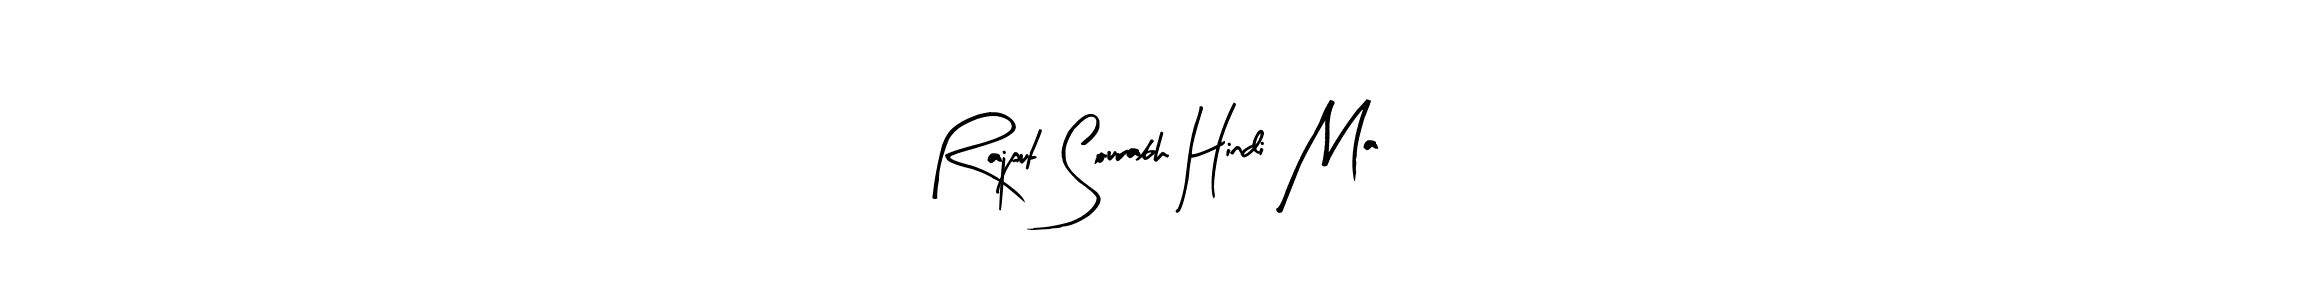 Rajput Saurabh Hindi Ma